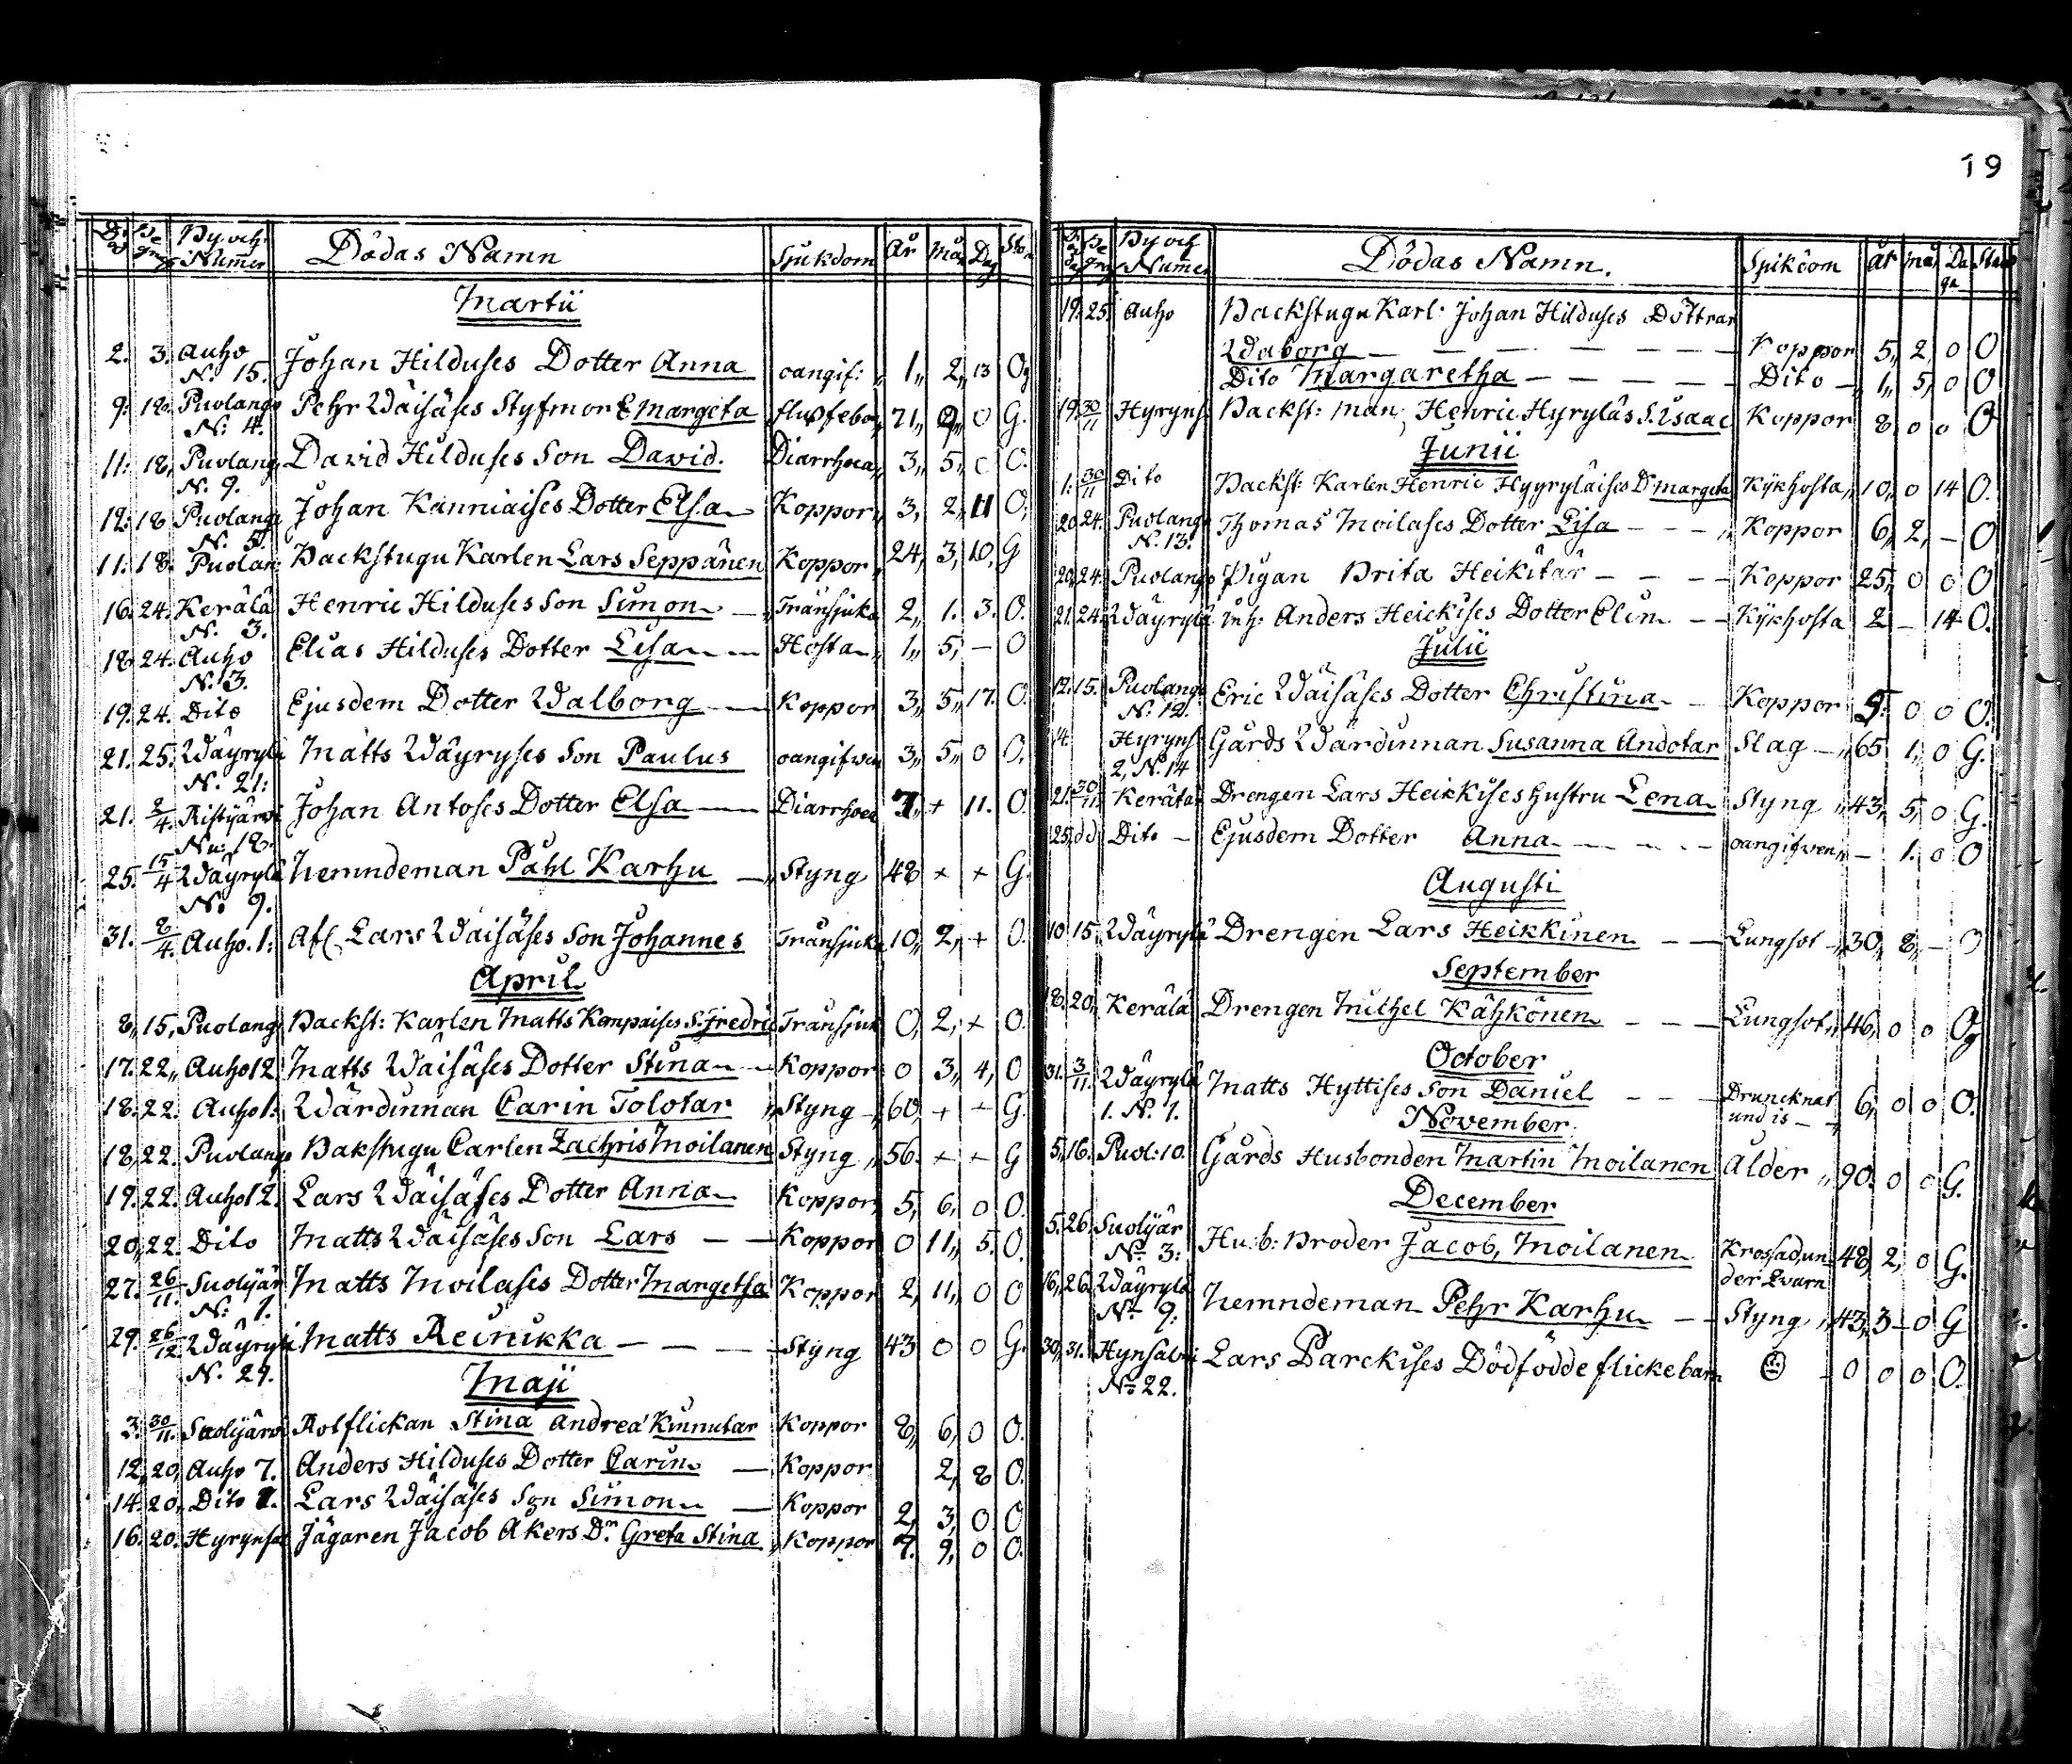 19
Dö Be By och Sjukdom År Mån Dag
d grafn Numer Dödas Namn
Martii
2. 3. Auho Johan Hilduses Dotter Anna oangif: 1,, 2,, 13 Og
N. 15.
9. 18. Puolango Pehr Wäisäses Styfmor Margeta flussfeber 71,, 9,, 0 G.
N: 4.
11. 18, Puolang David Hilduses Son David. Diarrhoea,, 3,, 5,, 0 O.
N. 9.
12. 18 Puolango Johan Kanniaises Dotter Elsa Koppor,, 3, 2,, 11 O,
N. 5.
11. 18. Puolan: Backstugu Karlen Lars Seppänen Koppor,, 24, 3, 10, G
16. 24. Kerälä Henric Hilduses Son Simon Tränsjuka 2,, 1. 3. O.
N. 3.
18. 24. Auho Elias Hilduses Dotter Lisa Hosta 1,, 5,, – O
N. 3.
19. 24. Dito Ejusdem Dotter Walborg Koppor 3,, 5,, 17. O.
21. 25. Wäyrylä Matts Wäyryses Son Paulus oangifven 3,, 5,, 0 O.
N. 21:
21. 2/4. Ristijärvi Johan Antoses Dotter Elsa Diarrhoea 7,, + 11. O.
No: 18.
25. 15/4 Wäyrylä Nemndeman Påhl Karhu Styng 48 + + G.
N: 9.
31. 8/4. Auho. 1: Afl. Lars Wäisäses Son Johannes Tränsjuka 10,, 2,, + O.
April
8,, 15, Puolang Backst: Karlen Matts Kempaises S. Fredric Tränsjuk 0, 2,, + O.
17. 22,, Auho 12 Matts Wäisäses Dotter Stina Koppor 0 3,, 4, O
18. 22. Auho 1: Wärdinnan Carin Tolotar Styng 60, + + G.
18, 22. Puolango Bakstugu Carlen Zachris Moilanen Styng,, 56. + + G
19. 22. Auho 12. Lars Wäisäses Dotter Anna Koppor, 5,, 6,, 0 O.
20,, 22. Dito Matts Wäisäses Son Lars Koppor 0 11,, 5. O.
27. 26/11. Suolijär Matts Moilases Dotter Margetha Koppor 2,, 11,, 0 O
N: 1.
29. 26/12 Wäyrylä Matts Reinikka Styng 43 0 0 G.
N. 29.
Maji
3. 30/11. Suolijärvi Rotflickan Stina Andrea Kinnutar Koppor 8,, 6,, 0 O.
12, 20, Auho 7. Anders Hilduses Dotter Carin Koppor 2,, 8 O.
14. 20,, Dito 1. Lars Wäisäses Son Simon Koppor 2, 3, 0 O
16. 20. Hyrynsal Jägaren Jacob Åkers Dr. Greta Stina Koppor 7. 9, 0 O.
By och Dödas Namn. Sjukdom År Mån Da Stånd
Numer ga
19. 25. Auho Backstugu Karl: Johan Hilduses Döttrar
Waborg Koppor 5,, 2, 0 O
Dito Margaretha Dito 1,, 5,, 0 O
19. 30/11 Hyryns. Backst: man, Henric Hyryläs S. Isaac Koppor 8, 0 0 O
Junii
1. 30/11 Dito Backst: Karlen Henric Hyyryläises D. Margeta Kikhosta,, 10,, 0 14 O.
20. 24. Puolango Thomas Moilases Dotter Lisa Koppor 6,, 2,, – O
N. 13.
20. 24. Puolango Pigan Brita Heikitär Koppor 25, 0 0 O
21. 24. Wäyrylä inh: Anders Heickises Dotter Elin Kikhosta 2 – 14. O.
Julii
12. 15. Puolango Eric Wäisäses Dotter Christina Koppor 5. 0 0 O.
N: 12.
14. Hyryns Gårds Wärdinnan Susanna Andotar Slag 65 1,, 0 G.
2, N. 14
21. 30/11. Kerälä Drengen Lars Heikkises hustru Lena Styng,, 43,, 5, 0 G.
25, dd. Dito Ejusdem Dotter Anna oangifven – 1. 0 O
Augusti
10 15,, Wäyrylä Drengen Lars Heikkinen Lungsot 30,, 8,, – O
September
18. 20,, Kerälä Drengen Michel Kähkönen Lungsot,, 46, 0 0 Og
October
31. 3/11. Wäyrylä Matts Hyttises Son Daniel Druncknat 6,, 0 0 O.
1. N. 1. und is
November.
5,, 16. Puol: 10. Gårds Husbonden Martin Moilanen Ålder,, 90. 0 0 G.
December
5. 26. Suolijär Husb: Broder Jacob, Moilanen Krossad un 48, 2, 0 G.
No 3: der Qvarn
16,, 26. Wäyrylä Nemndeman Pehr Karhu Styng,, 43,, 3 – 0 G
No 9:
30, 31. Hynsalmi Lars Parckises Dödfödde flickebarn 0 0 0 O.
No 22.